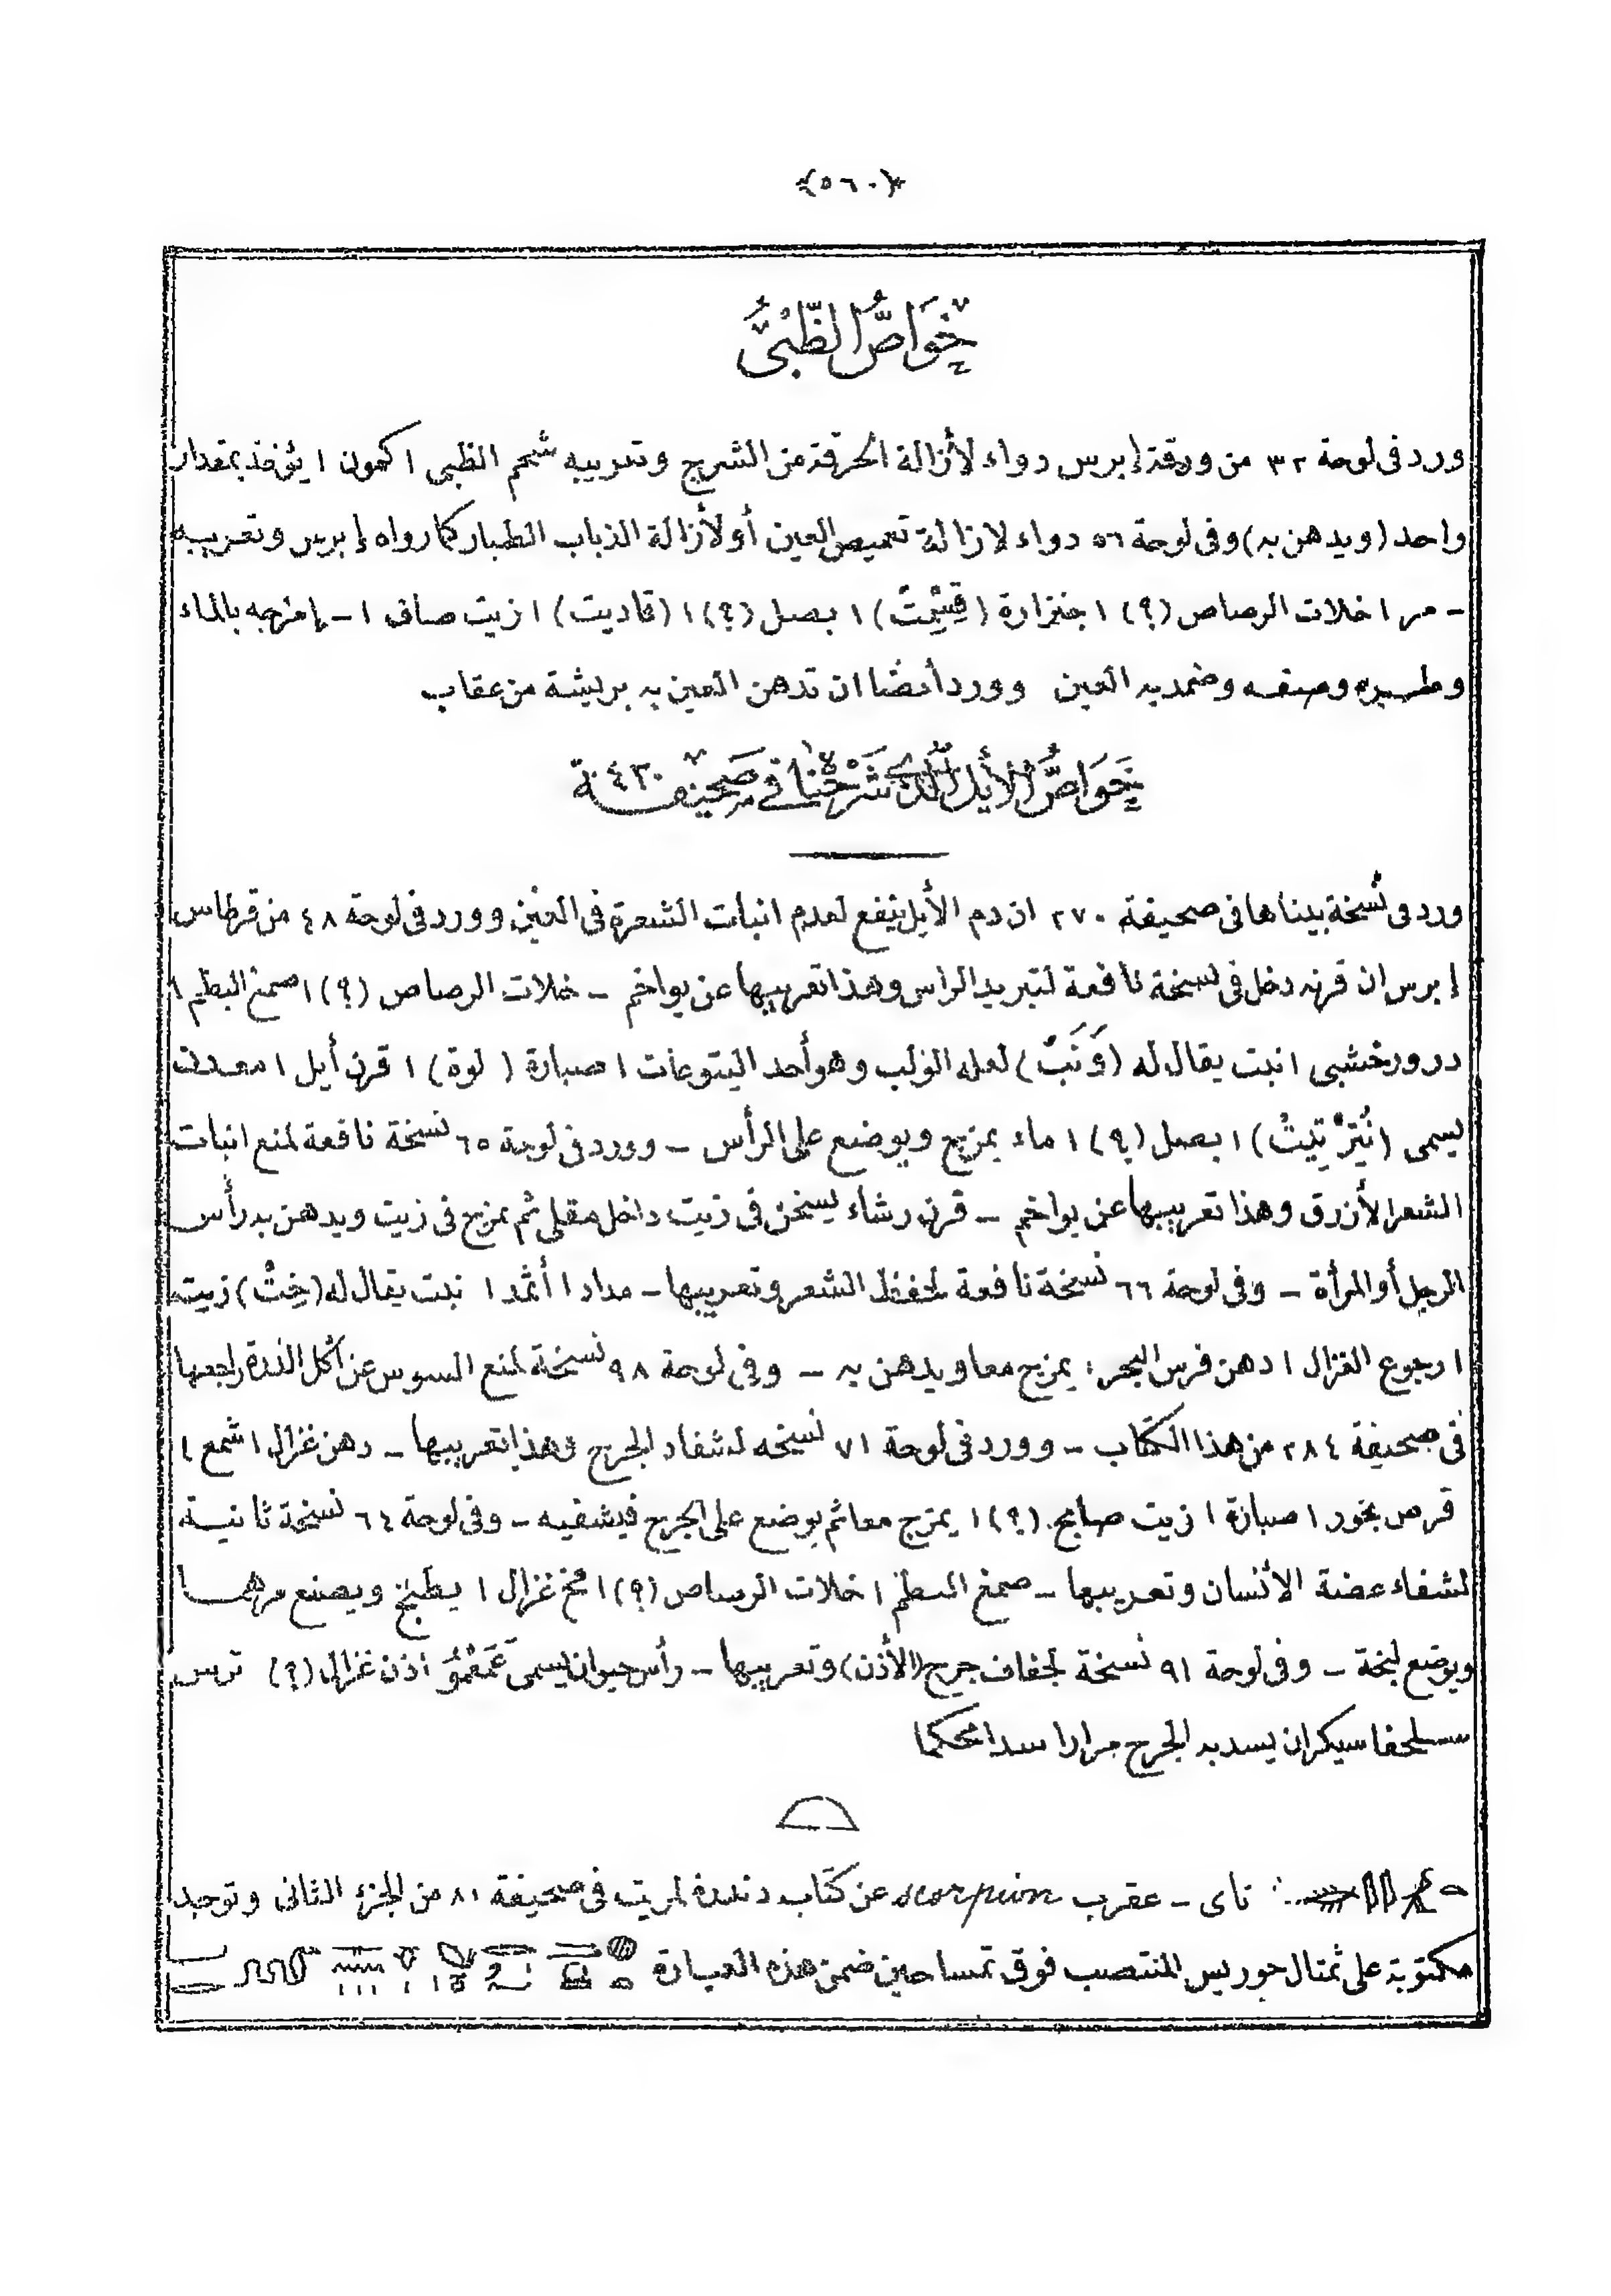 ﴿٥٦٠﴾
خَوَاصُّ الظَّبْىِ
ورد فى لوحة ٣٢ من ورقة إبرس دواء لأزالة الحرقة من الشرج وتعريبه شحم الظبى ١ كمون ١ يؤخذ بمقدار
واحد (ويدهن به) وفى لوحة ٥٦ دواء لازالة تعميص العين أو لأزالة الذباب الطيار كما رواه إبرس وتعريبه
– مر ١ خلات الرصاص (؟) ١ جنزارة (قِسْمِتْ) ١ بصل (؟) ١ (قاديت) ١ زيت صاف ١ – إمزجه بالماء
وصفه وضمد به العين وورد أيضا ان تدهن العين به بريشة من عقاب
خَوَاصُّ الأيل الَّذِى شَرَحْنَا فى صَحِيفة ٤٣٠
ورد فى نسخة بيناها فى صحيفة ٢٧٠ ان دم الأيل ينفع لعدم انبات الشعرة فى العين وورد فى لوحة ٤٨ من قرطاس
إبرس ان قرنه دخل فى نسخة نافعة لتبريد الراس وهذا تعريبها عن يواخم – خلات الرصاص (؟) ١ صمغ البطم ١
دردور خشبى ١ نبت يقال له (وَنَبْ) لعله الولب وهو أحد اليتوعات ١ صبارة (لوة) ١ قرن أيل ١ معدن
يسمى () ١ بصل (؟) ١ ماء يمزج ويوضع على الرأس – وورد فى لوحة ٦٥ نسخة نافعة لمنع انبات
الشعر الأزرق وهذا تعريبها عن يواخم – قرن رشاء يسخن فى زيت داخل مقلى ثم يمزج فى زيت ويدهن به رأس
الرجل أو المرأة – وفى لوحة ٦٦ نسخة نافعة لحفظ الشعر وتعريبها – مداد ١ أثمد ١ نبت يقال له (خِتْ) زيت
١ رجوع الغزال ١ دهن فرس البحر ١ يمزج معا ويدهن به – وفى لوحة ٩٨ نسخة لمنع السوس عن أكل الذرة راجعها
فى صحيفة ٢٨٤ من هذا الكتاب – وورد فى لوحة ٧١ نسخه لشفاء الجرح وهذا تعريبها – دهن غزال ١ شمع ١
قرص بخور ١ صبارة ١ زيت صابح (؟) ١ يمزج معا ثم يوضع على الجرح فيشفيه – وفى لوحة ٦٤ نسخة ثانية
لشفاء عضة الأنسان وتعريبها – صمغ البطم ١ خلات الرصاص (؟) ١ مخ غزال ١ يطبخ ويصنع مرهما
ويوضع لبخة – وفى لوحة ٩١ نسخة لجفاف جرح (الأذن) وتعريبها – رأس حيوان يسمى عَمَعْمُو أذن غزال (؟) ترس
سلحفا سيكران يسد به الجرح مرارا سدا محكما
تاى – عقرب scorpion عن كتاب دندرة لمريت فى صحيفة ٨١ من الجزء الثانى وتوجد
مكتوبة على تمثال حوريس المنتصب فوق تمساحين ضمن هذه العبارة